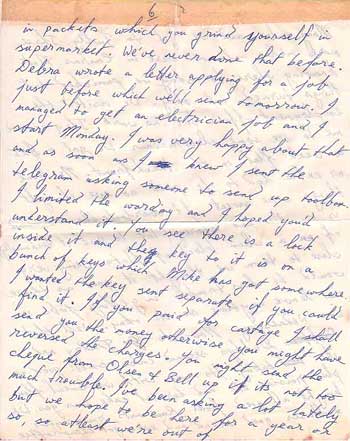 6
in packets which you grind yourself in
supermarket. We've never done that before.
Debra wrote a letter applying for a job
just before which we'll send tomorrow. I
managed to get an electrician job and I
start Monday. I was very happy about that
and as soon as I knew I sent the
telegram asking someone to send up toolbox.
I limited the wording and I hoped you'd
understand it. You see there is a lock
inside it and they key to it is on a
bunch of keys which Mike has got somewhere.
I wanted the key sent separate if you could
find it. If you paid for cartage I shall
send you the money otherwise you might have
reversed the charges. You might send the
cheque from Olsen & Bell up if its not too
much trouble. I've been asking a lot lately
but we hope to be here for a year or
so, so atleast we're out of